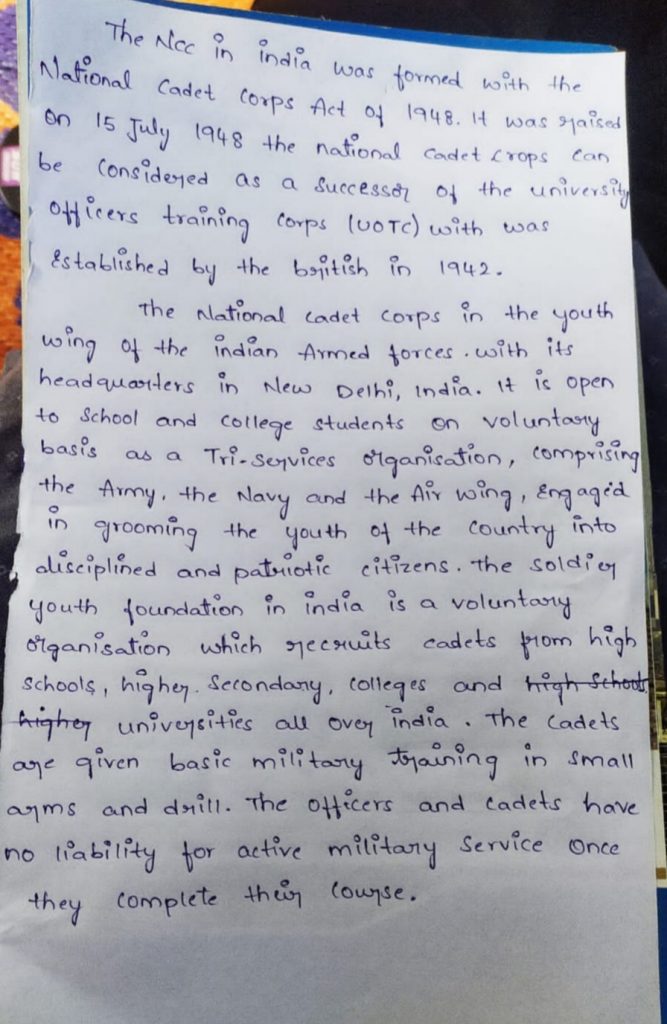 The Ncc in india was formed with the
National Cadet Corps Act of 1948. It was raised
on 15 July 1948 the national cadet crops can
be Considered as a Successor of the university
officers training Corps (UOTC) with was
Established by the british in 1942.
The National cadet corps in the youth
wing of the indian Armed forces. with its
headquarters in New Delhi, India. It is open
to School and college students on voluntary
basis as a Tri-services organisation, comprising
the Army, the Navy and the Air wing, Engaged
in grooming the youth of the country into
disciplined and patriotic citizens. The soldier
youth foundation in india is a voluntary
organisation which recruits cadets from high
schools, higher. Secondary, colleges and high schools
higher universities all over india. The Cadets
are given basic military training in small
arms and drill. The officers and cadets have
no liability for active military Service Once
they complete their Course.